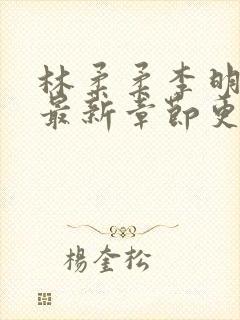 林柔柔李明
最新章節更
楊奎松